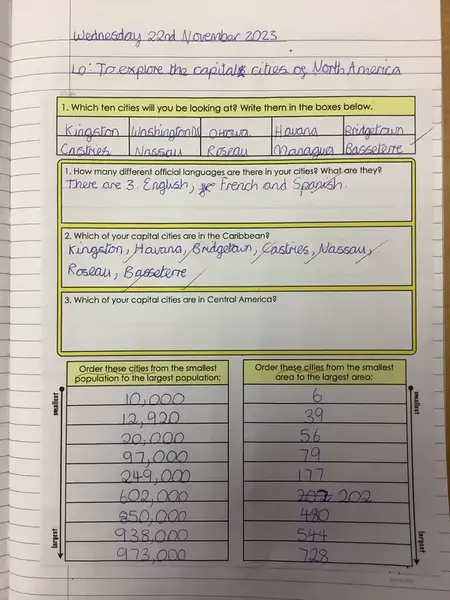 Wednesday 22nd November 2023
LO: To explore the capital cities of North America
1. Which ten cities will you be looking at? Write them in the boxes below.
Kingston Washington DC Ottowa Havana Bridgetown
Castries Nassau Roseau Managua Basseterre
1. How many different official languages are there in your cities? What are they?
There are 3. English, French and Spanish.
2. Which of your capital cities are in the Caribbean?
Kingston, Havana, Bridgetown, Castries, Nassau,
Roseau, Basseterre
3. Which of your capital cities are in Central America?
Order these cities from the smallest
population to the largest population:
smallest
10,000
12,920
20,000
97,000
249,000
602,000
850,000
938,000
973,000
largest
Order these cities from the smallest
area to the largest area:
smallest
6
39
56
79
177
202
480
544
728
largest